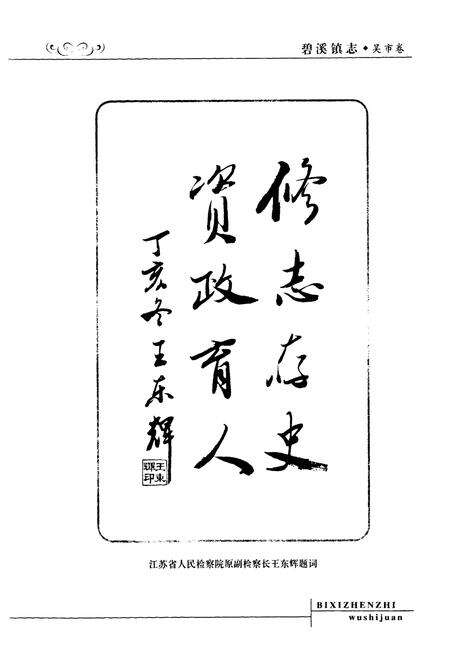 碧溪镇志◆吴市卷
修志存史
资政育人
丁亥冬王东辉
王東輝印
江苏省人民检察院原副检察长王东辉题词
BIXIZHENZHI
wushijuan